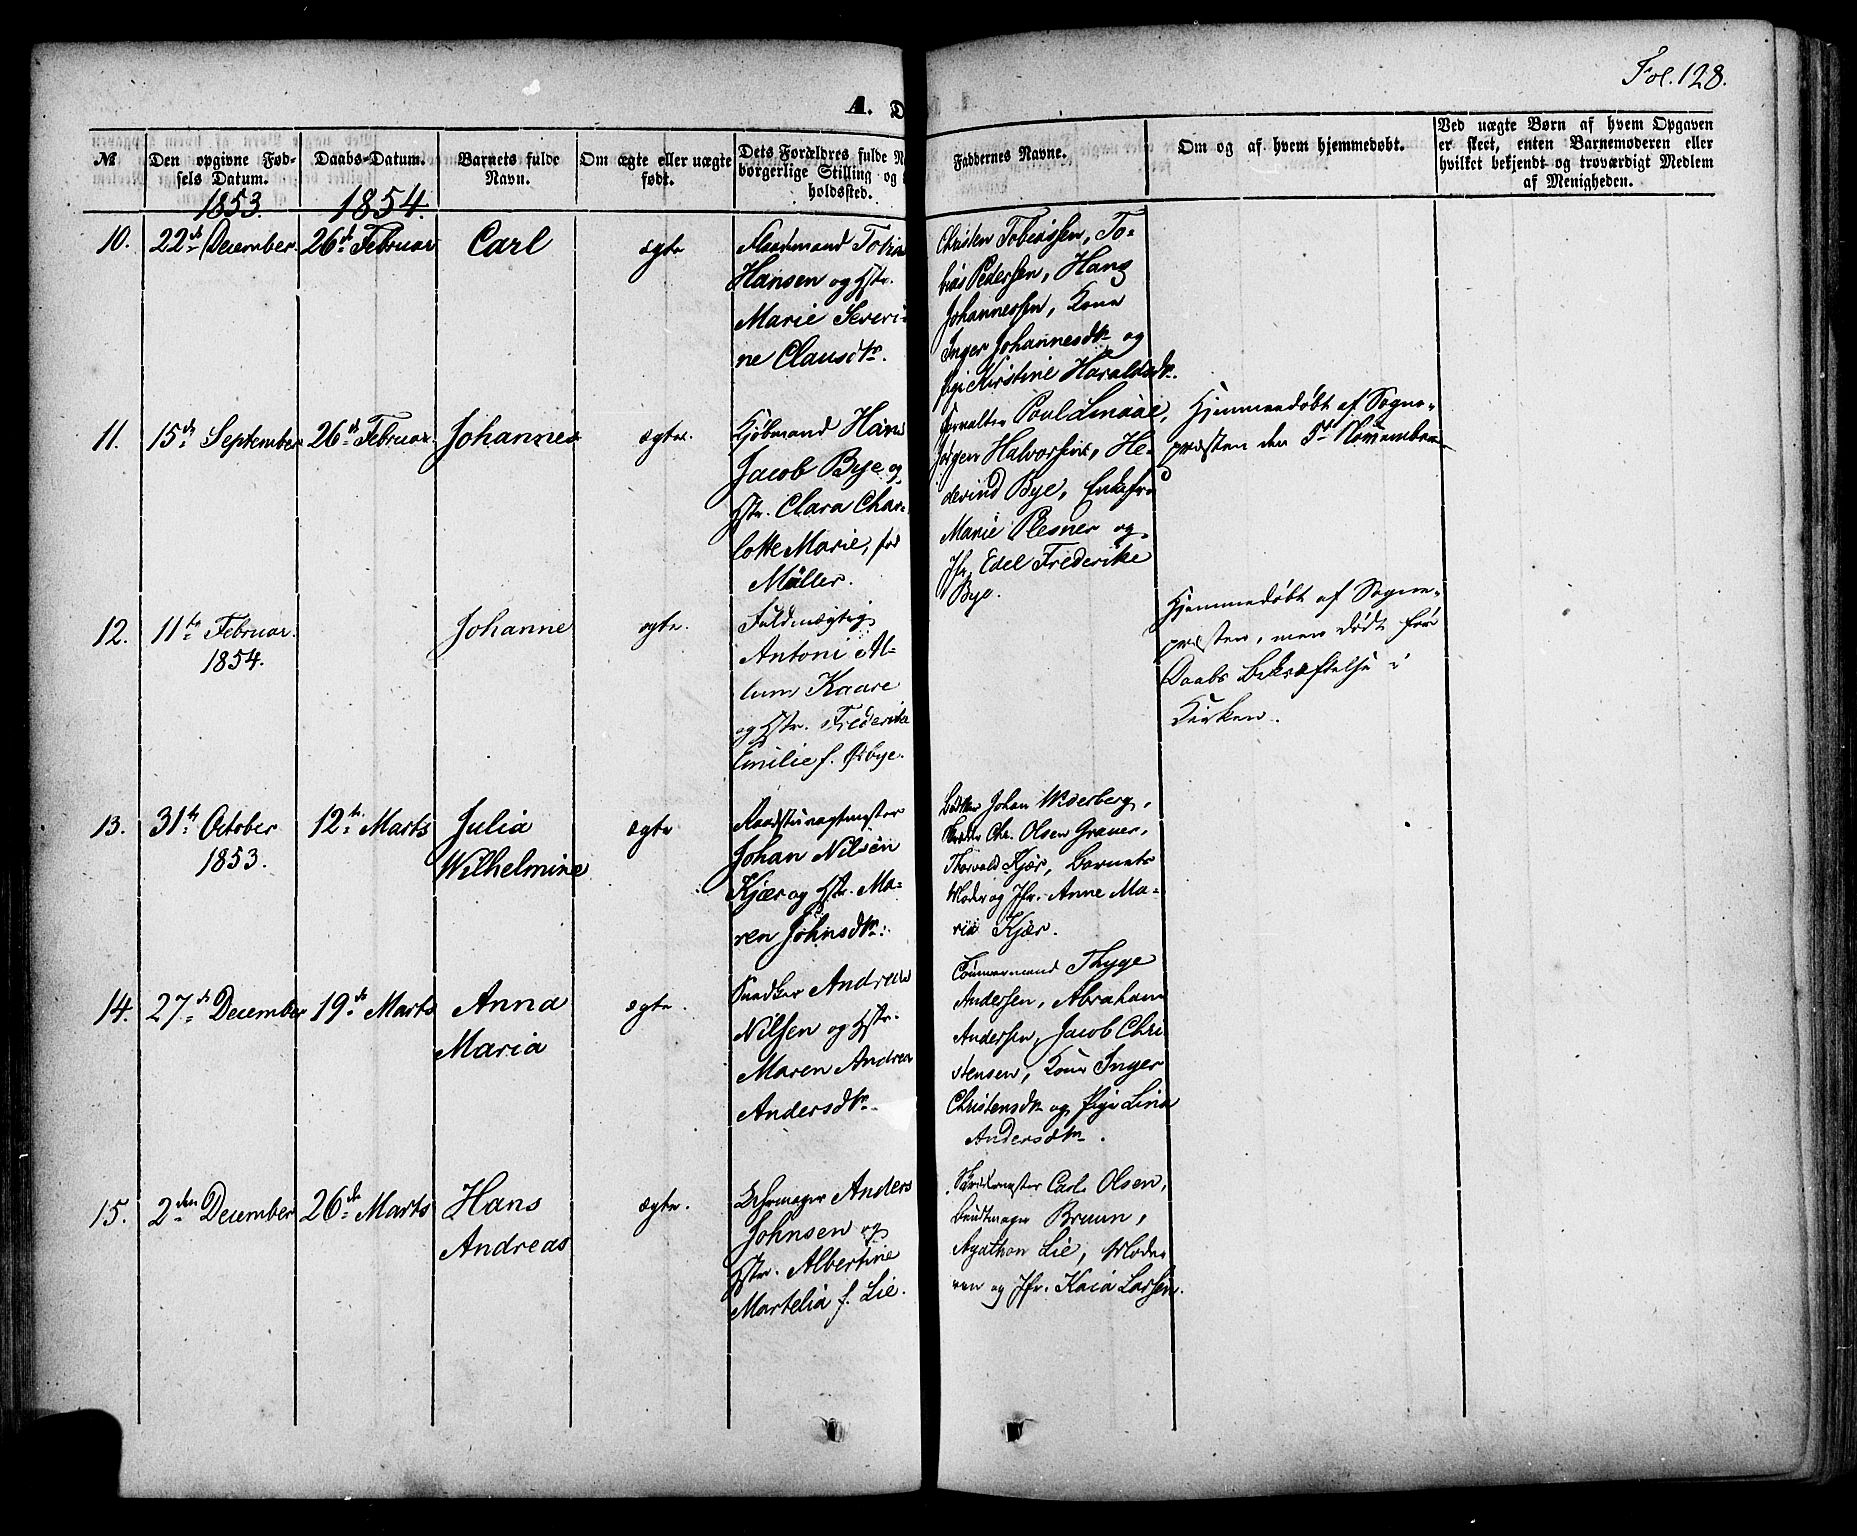 Fol. 128.
A. D
№
Den opgivne Fød-
sels Datum.
1853.
Daabs-Datum.
1854.
Barnets fulde
Navn.
Om ægte eller uægte
født.
Dets Forældres fulde N
borgerlige Stilling og
holdssted.
Faddernes Navne.
Om og af hvem hjemmedøbt.
Ved uægte Børn af hvem Opgaven
er skeet, enten Barnemoderen eller
hvilket bekjendt og troværdigt Medlem
af Menigheden.
10. 22de December 26de Februar Carl ægte
Tobias
Hansen og Hstr.
Marie Severi-
ne Clausdtr.
Christen Tobiassen, To-
bias Pedersen, Hans
Johannessen, Kone
Inger Johannesdtr og
Pige Kirstine Haraldsdtr.
11. 15de September 26de Februar Johannes ægte.
Kjøbmand Hans
Jacob Bye og
Hstr. Clara Char-
lotte Marie, fød
Müller.
Forvalter Poul Linaae,
Jørgen Halvorsens, He-
devind Bye, Enkefru
Marie Plesner og
Jfr. Edel Frederike
Bye.
Hjemmedøbt af Sogne-
præsten den 5te November
12. 11te Februar
1854.
Johanne ægte.
Fuldmægtig
Antoni Al-
lum Kaare
og Hstr. Frederike
Emilie f. Ørbye.
Hjemmedøbt af Sogne-
præsten, men døde før
Daabs Bekræftelse i
Kirken.
13. 31te October
1853.
12te Marts Julia
Wilhelmine
ægte
Raadstuvagtmester
Johan Nilsen
Kjær og Hstr. Ma-
ren Johnsdtr.
Bødker Johan Wederberg,
Chr. Olsen Graver,
Thorvald Kjær, Barnets
Moder og Jfr. Anne Ma-
ria Kjær.
14. 27de December 19de Marts Anna
Maria
ægte.
Snedker Andreas
Nilsen og Hstr.
Maren Andrea
Andersdtr.
Tømmermand Thyge
Andersen, Abraham
Andersen, Jacob Chri
stensen, Kone Inger
Christensdtr og Pige Lina
Andersdtr.
15. 2den December 26de Marts Hans
Andreas
ægte.
Anders
Johnsen og
Hstr. Albertine
Martelia f. Lie.
Skrædermester Carl Olsen,
Buntmager Bruun,
Agathon Lie, Mode-
ren og Jfr. Kaia Larsen.